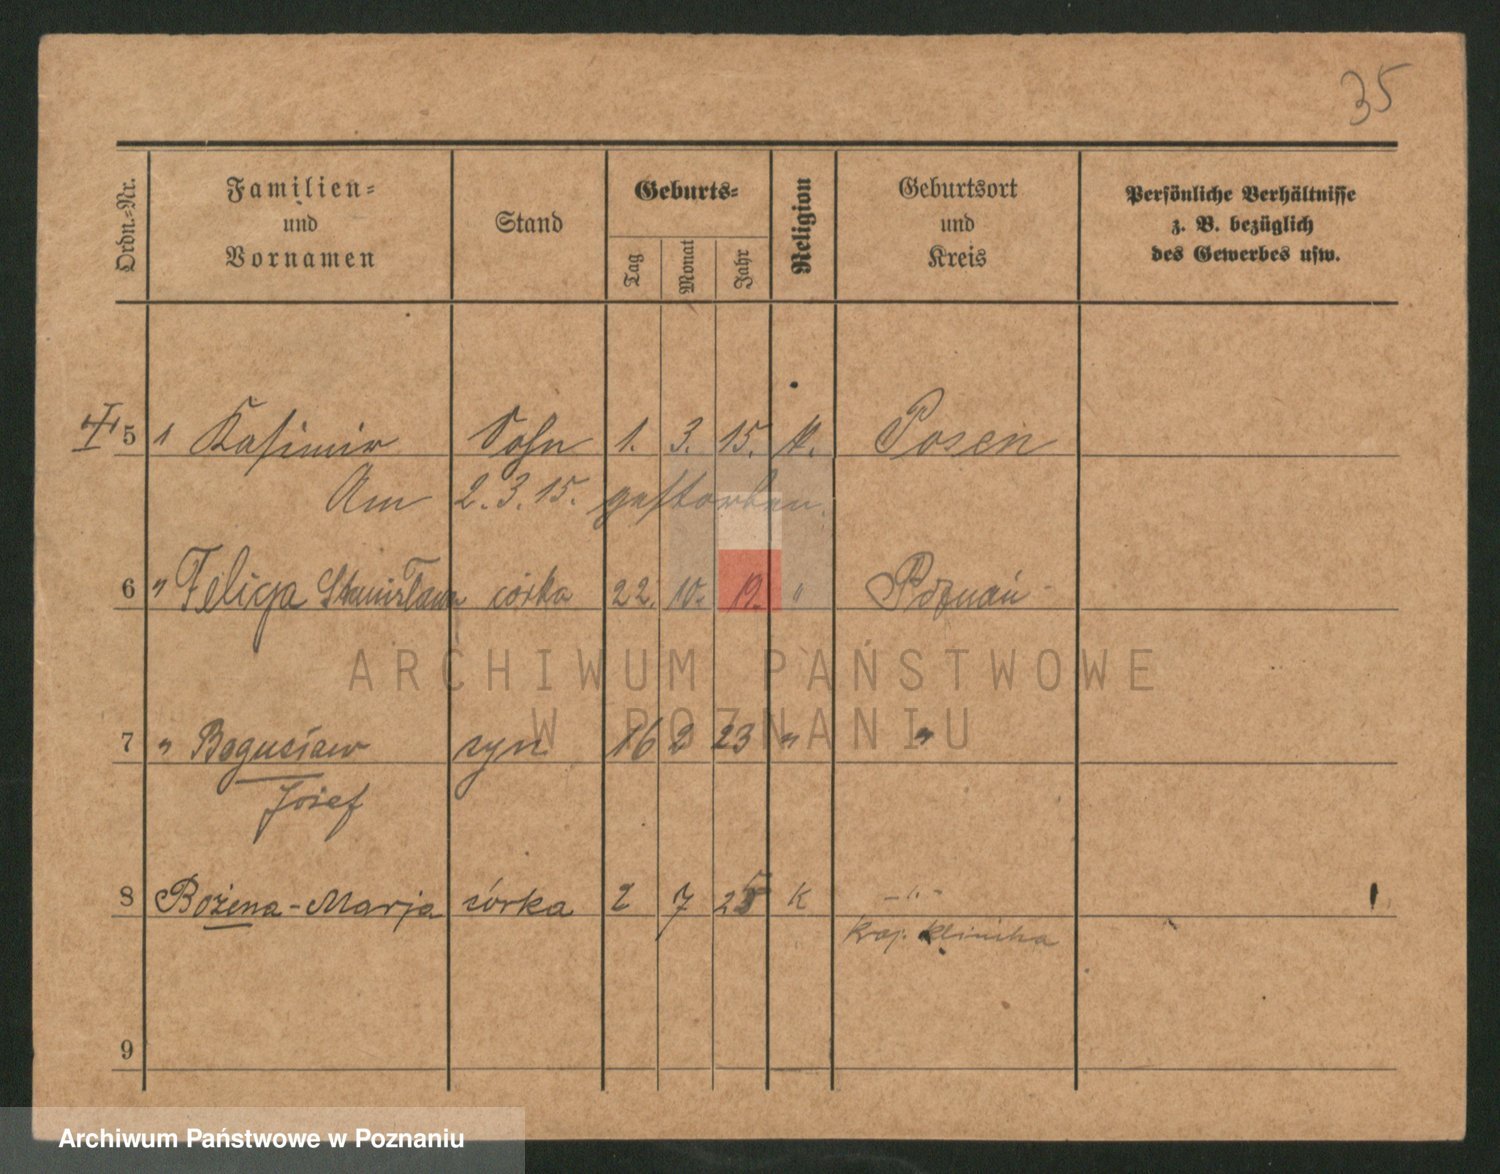 35
Ordn.-Nr. Familien- und Vornamen Stand Geburts- Tag Monat Jahr Religion Geburtsort und Kreis Persönliche Verhältnisse z. B. bezüglich des Gewerbes usw.
5 " Kasimir Sohn 1. 3. 15. k. Posen
Am 2.3.15. gestorben.
6 " Felicja Stanisława córka 22. 10. 19. " Poznań
ARCHIWUM PAŃSTWOWE
W POZNANIU
7 " Bogusław syn 16 2 23 " "
Józef
8 Bożena-Marja córka 2 7 25 K - " -
Kraj. klinika
9
Archiwum Państwowe w Poznaniu